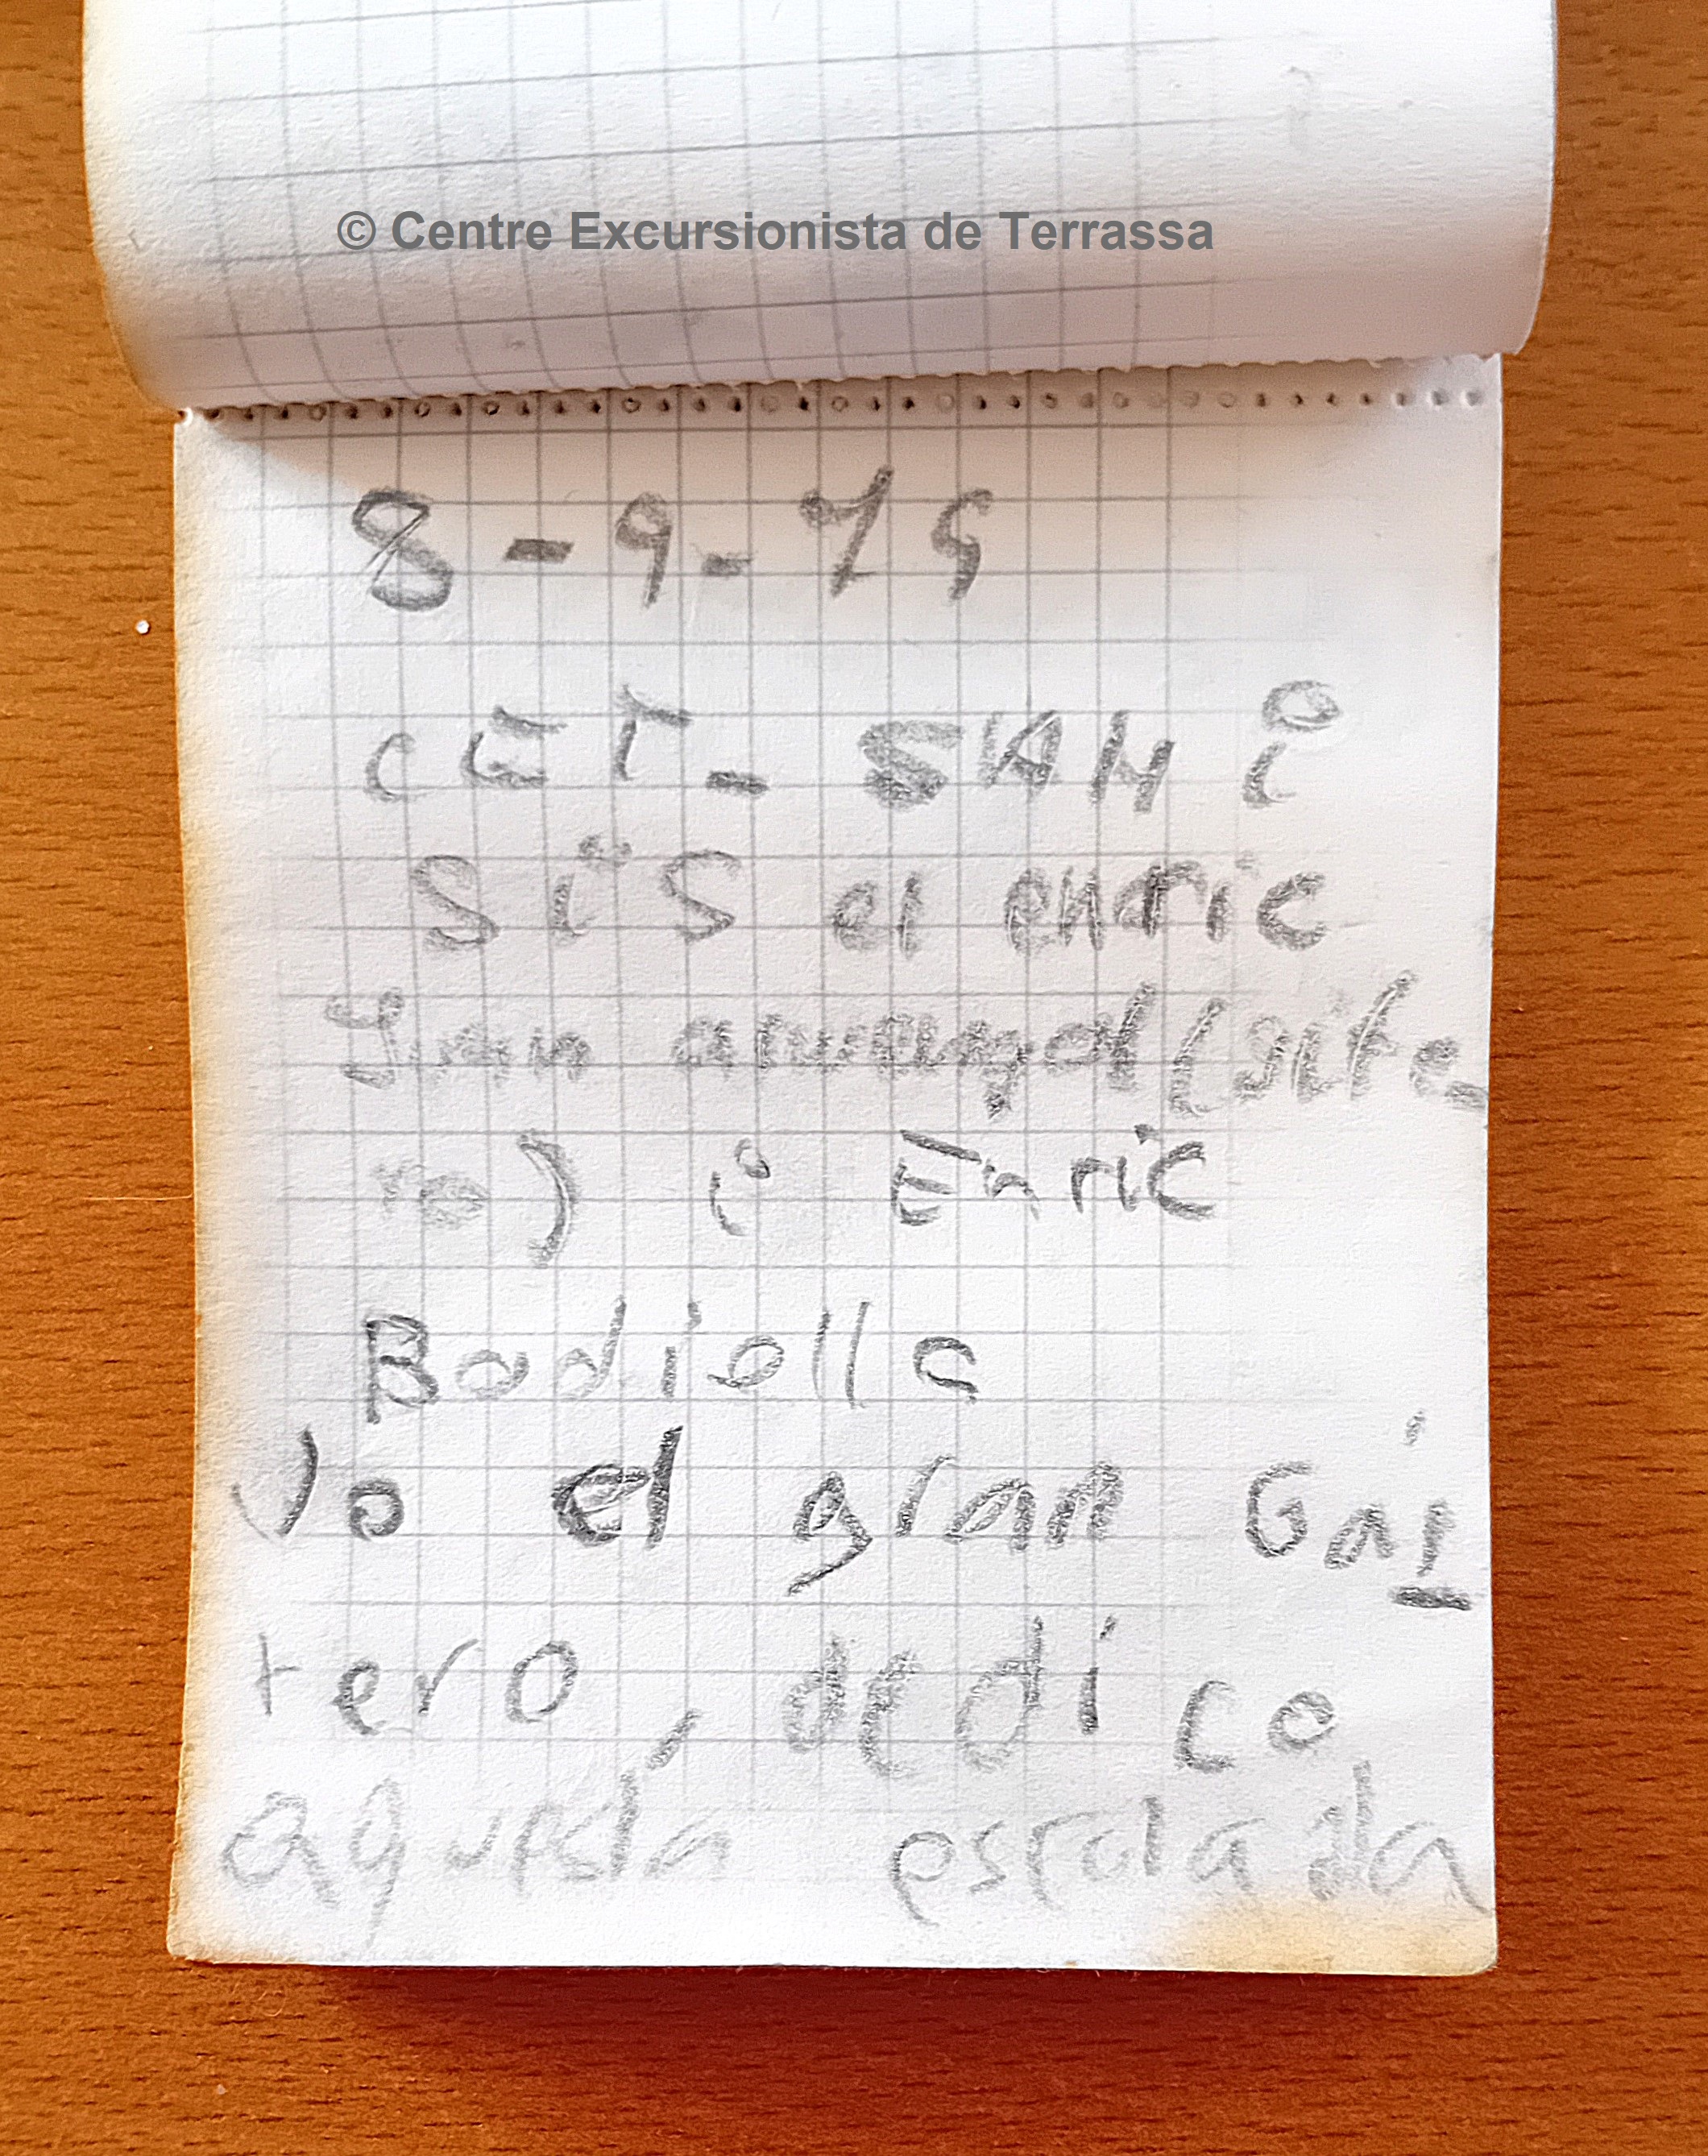 © Centre Excursionista de Terrassa
8-9-75
CET- SAM i
SiS el enric
(gite
ro) i Enric
Badiella
Jo el gran Gai
tero, dedico
aquesta escalada